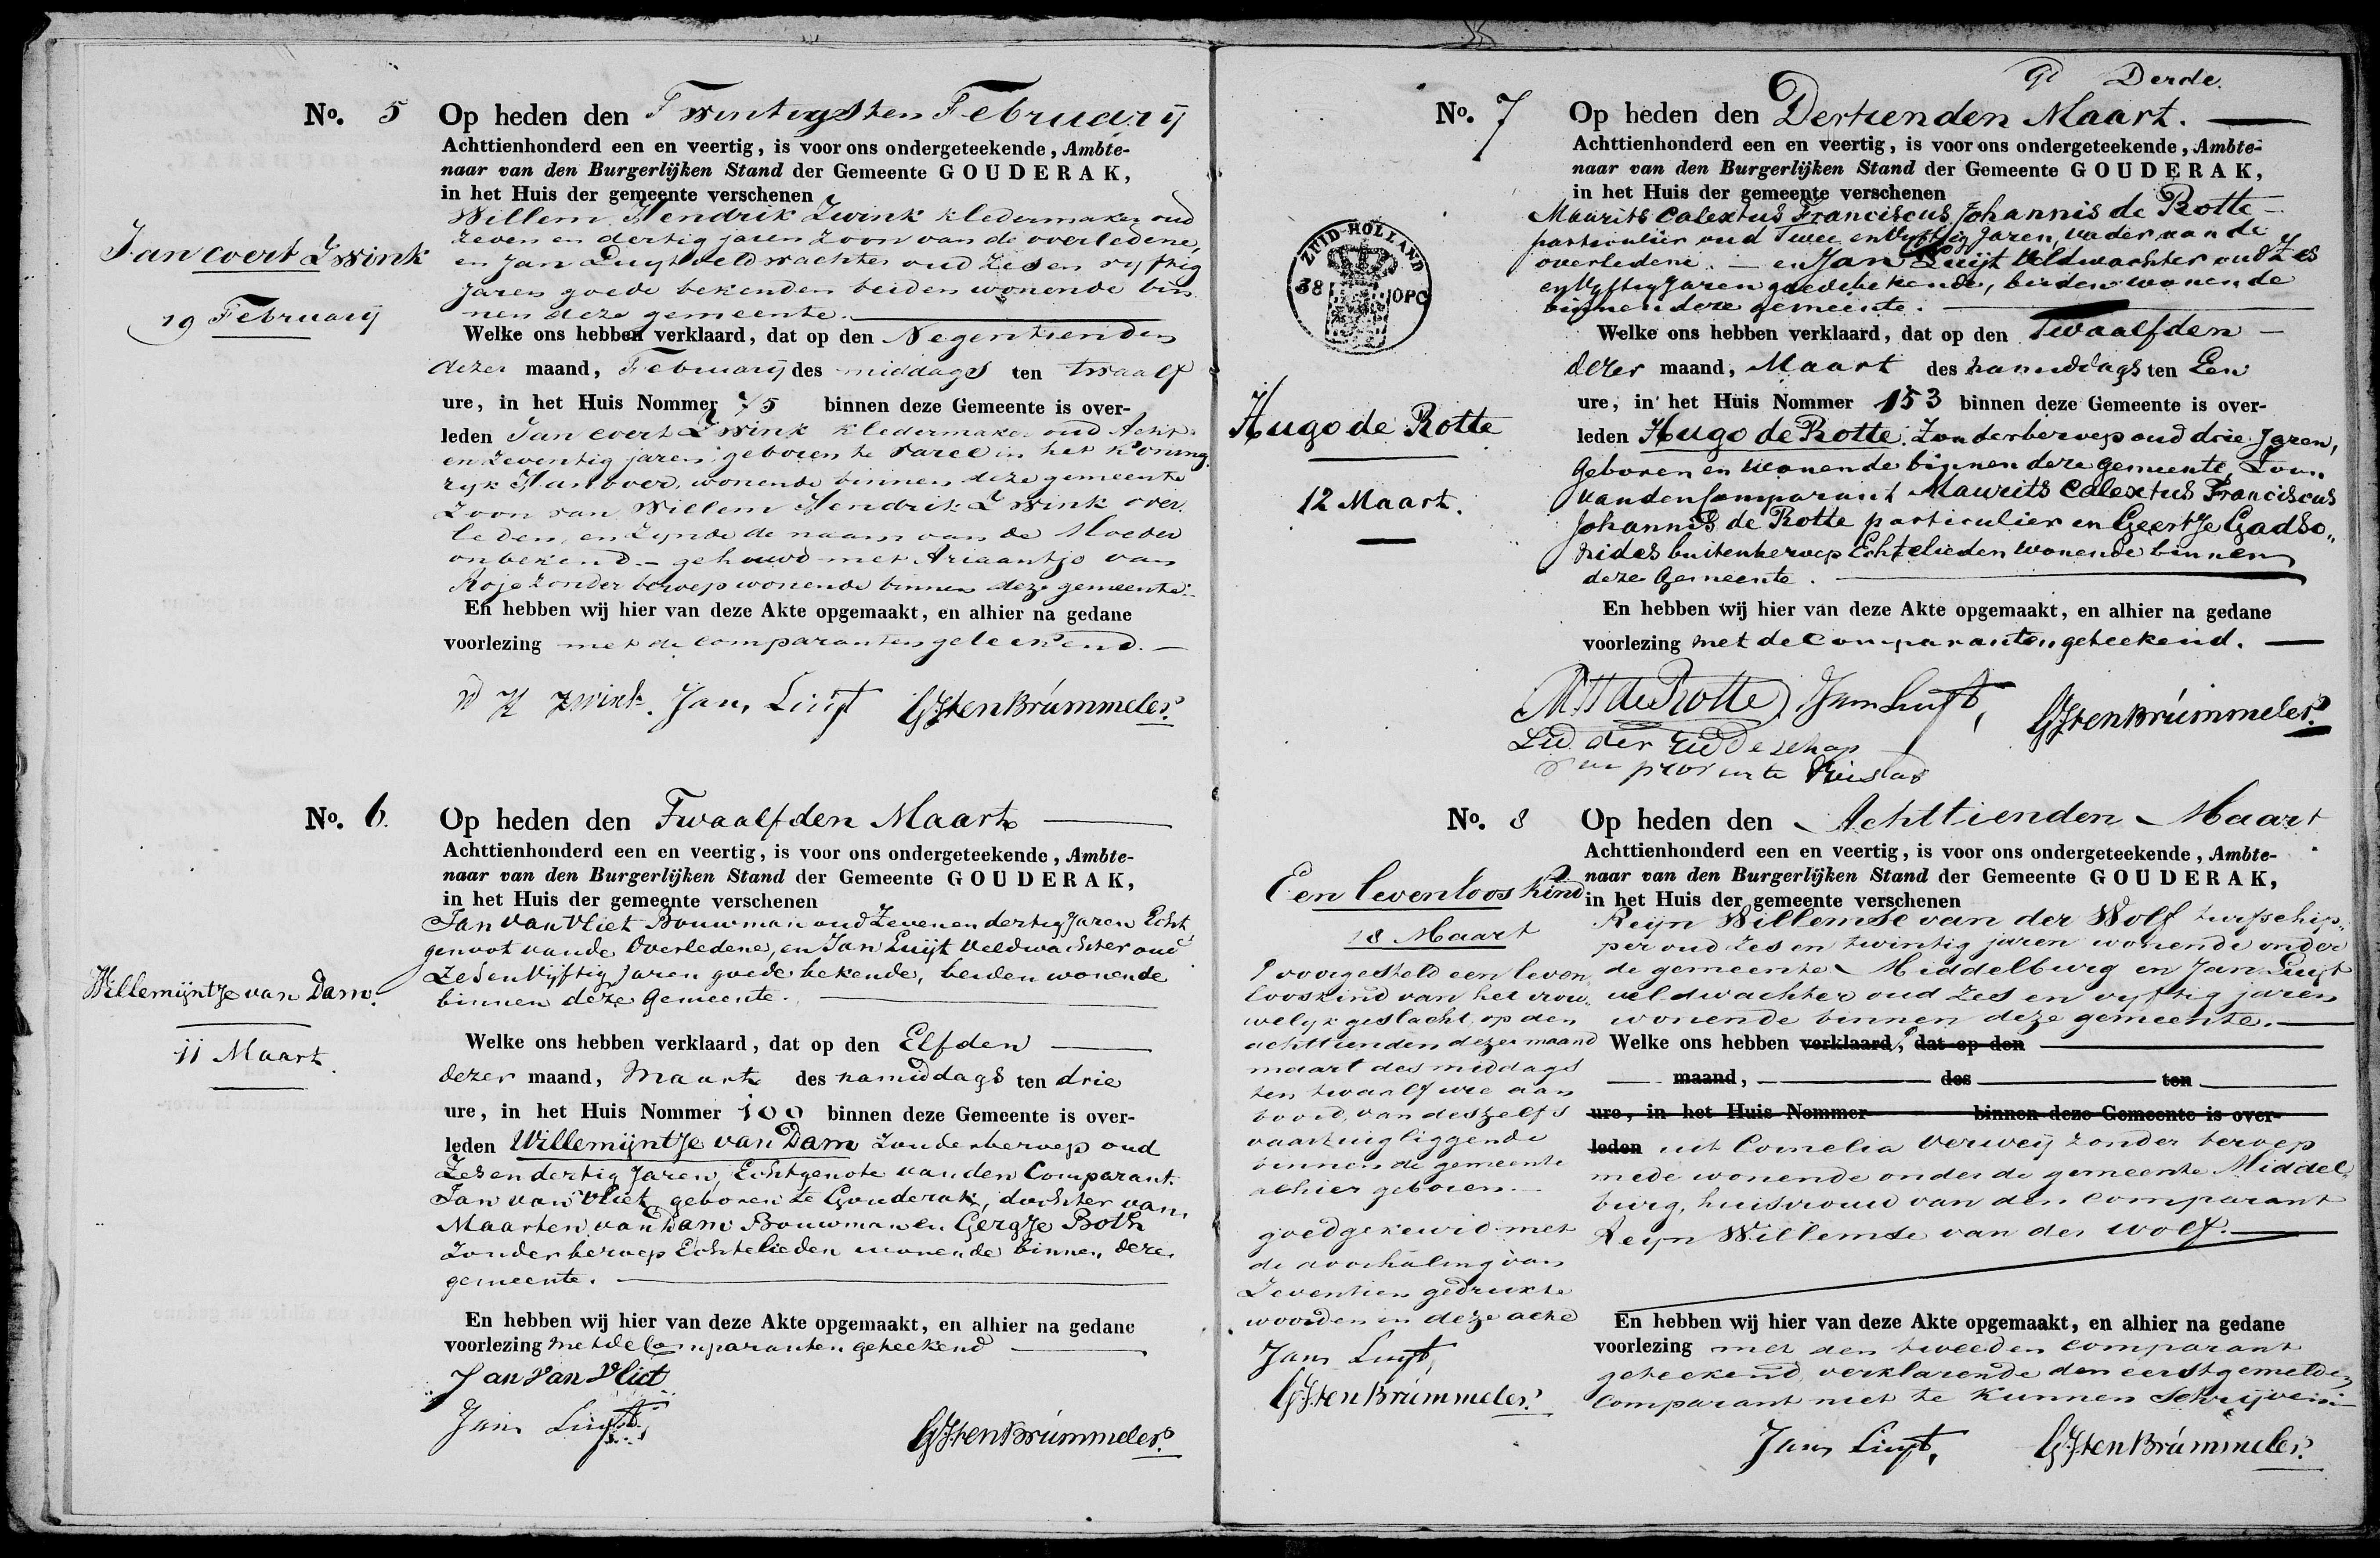 No. 5
Jan evert Zwink
19 February
Op heden den Twintigsten February
Achttienhonderd een en veertig, is voor ons ondergeteekende, Ambte-
naar van den Burgerlijken Stand der Gemeente GOUDERAK,
in het Huis der gemeente verschenen
Willem Hendrik Zwink kledermaker oud
zeven en dertig jaren zoon van de overledene,
en Jan Luyt veldwachter oud zes en vyftig
jaren goede bekenden beiden wonende bin
nen deze gemeente.
Welke ons hebben verklaard, dat op den Negentienden
dezer maand, February des middags ten twaalf
ure, in het Huis Nommer 75 binnen deze Gemeente is over-
leden Jan evert Zwink kledermaker oud Acht
en zeventig jaren geboren te in het Koning
ryk Hanover, wonende binnen deze gemeente
Zoon van Willem Hendrik Zwink over
leden, en zynde de naam van de Moeder
onbekend - gehuwd met Ariaantje van
Roje zonder beroep wonende binnen deze gemeente.
En hebben wij hier van deze Akte opgemaakt, en alhier na gedane
voorlezing met de comparanten geteekend.
W H Zwink. Jan Luyt GJtenBrúmmeler
No. 6.
Willemijntje van Dam.
11 Maart
Op heden den Twaalfden Maart
Achttienhonderd een en veertig, is voor ons ondergeteekende, Ambte-
naar van den Burgerlijken Stand der Gemeente GOUDERAK,
in het Huis der gemeente verschenen
Jan van Vliet Bouwman oud Zevenendertig Jaren Echt
genoot vande Overledene, en Jan Luijt Veldwachter oud
Zesenvijftig Jaren goede bekende, beiden wonende
binnen deze Gemeente.
Welke ons hebben verklaard, dat op den Elfden
dezer maand, Maart des namiddags ten drie
ure, in het Huis Nommer 100 binnen deze Gemeente is over-
leden Willemijntje van Dam zonder beroep oud
Zesendertig Jaren, Echtgenote van den Comparant
Jan van Vliet, geboren te Gouderak, dochter van
Maarten van Dam Bouwman en Gergje Both
zonder beroep Echtelieden wonende binnen deze
gemeente.
En hebben wij hier van deze Akte opgemaakt, en alhier na gedane
voorlezing met de Comparanten geteekend
Jan van Vliet
Jan Luyt GJtenBrúmmeler
Derde.
No. 7
ZUID-HOLLAND
38 10PC
Hugo de Rotte
12 Maart.
Op heden den Dertienden Maart.
Achttienhonderd een en veertig, is voor ons ondergeteekende, Ambte-
naar van den Burgerlijken Stand der Gemeente GOUDERAK,
in het Huis der gemeente verschenen
Maurits Calextus Franciscus Johannis de Rotte
particulier oud Twee en Vyftig Jaren, vader van de
overledene. en Jan Luijt Veldwachter oud Zes
en Vyftig Jaren goede bekende, beiden wonende
binnen deze gemeente.
Welke ons hebben verklaard, dat op den Twaalfden
dezer maand, Maart des namiddags ten Een
ure, in het Huis Nommer 153 binnen deze Gemeente is over-
leden Hugo de Rotte. Zonder beroep oud drie Jaren,
Geboren en Wonende binnen deze gemeente, Zoon
van den Comparant Maurits Calextus Franciscus
Johannis de Rotte particulier en Geertje Gadso„
nides buiten beroep Echtelieden Wonende binnen
deze Gemeente.
En hebben wij hier van deze Akte opgemaakt, en alhier na gedane
voorlezing met de Comparanten geteekend.
de Rotte Jan Luyt, GJtenBrúmmeler
Lid der Ridderschap
provinte
No. 8
Een levenloos Kind
18 Maart
voorgesteld een leven
loos kind van het vrou
welyk geslacht, op den
achttienden dezer maand
maart des middags
ten twaalf ure aan
boord, van deszelfs
vaartuig liggende
binnen de gemeente
alhier geboren.
goedgekeurd met
de doorhaling van
Zeventien gedrukte
woorden in deze acte
Jan Luyt,
GJtenBrúmmeler
Op heden den Achttienden Maart
Achttienhonderd een en veertig, is voor ons ondergeteekende, Ambte-
naar van den Burgerlijken Stand der Gemeente GOUDERAK,
in het Huis der gemeente verschenen
Reijn Willemse van der Wolf turfschip„
per oud zes en twintig jaren wonende onder
de gemeente Middelburg en Jan Luyt
veldwachter oud zes en vyftig jaren
wonende binnen deze gemeente.
Welke ons hebben verklaard, dat op den
maand, des ten
ure, in het Huis Nommer binnen deze Gemeente is over-
leden uit Cornelia Verweij zonder beroep
mede wonende onder de gemeente Middel„
burg, huisvrouw van den comparant
Reijn Willemse van der Wolf.
En hebben wij hier van deze Akte opgemaakt, en alhier na gedane
voorlezing met den tweeden comparant
geteekend, verklarende den eerstgemelden
Comparant niet te kunnen Schrijven.
Jan Luyt, GJtenBrúmmeler